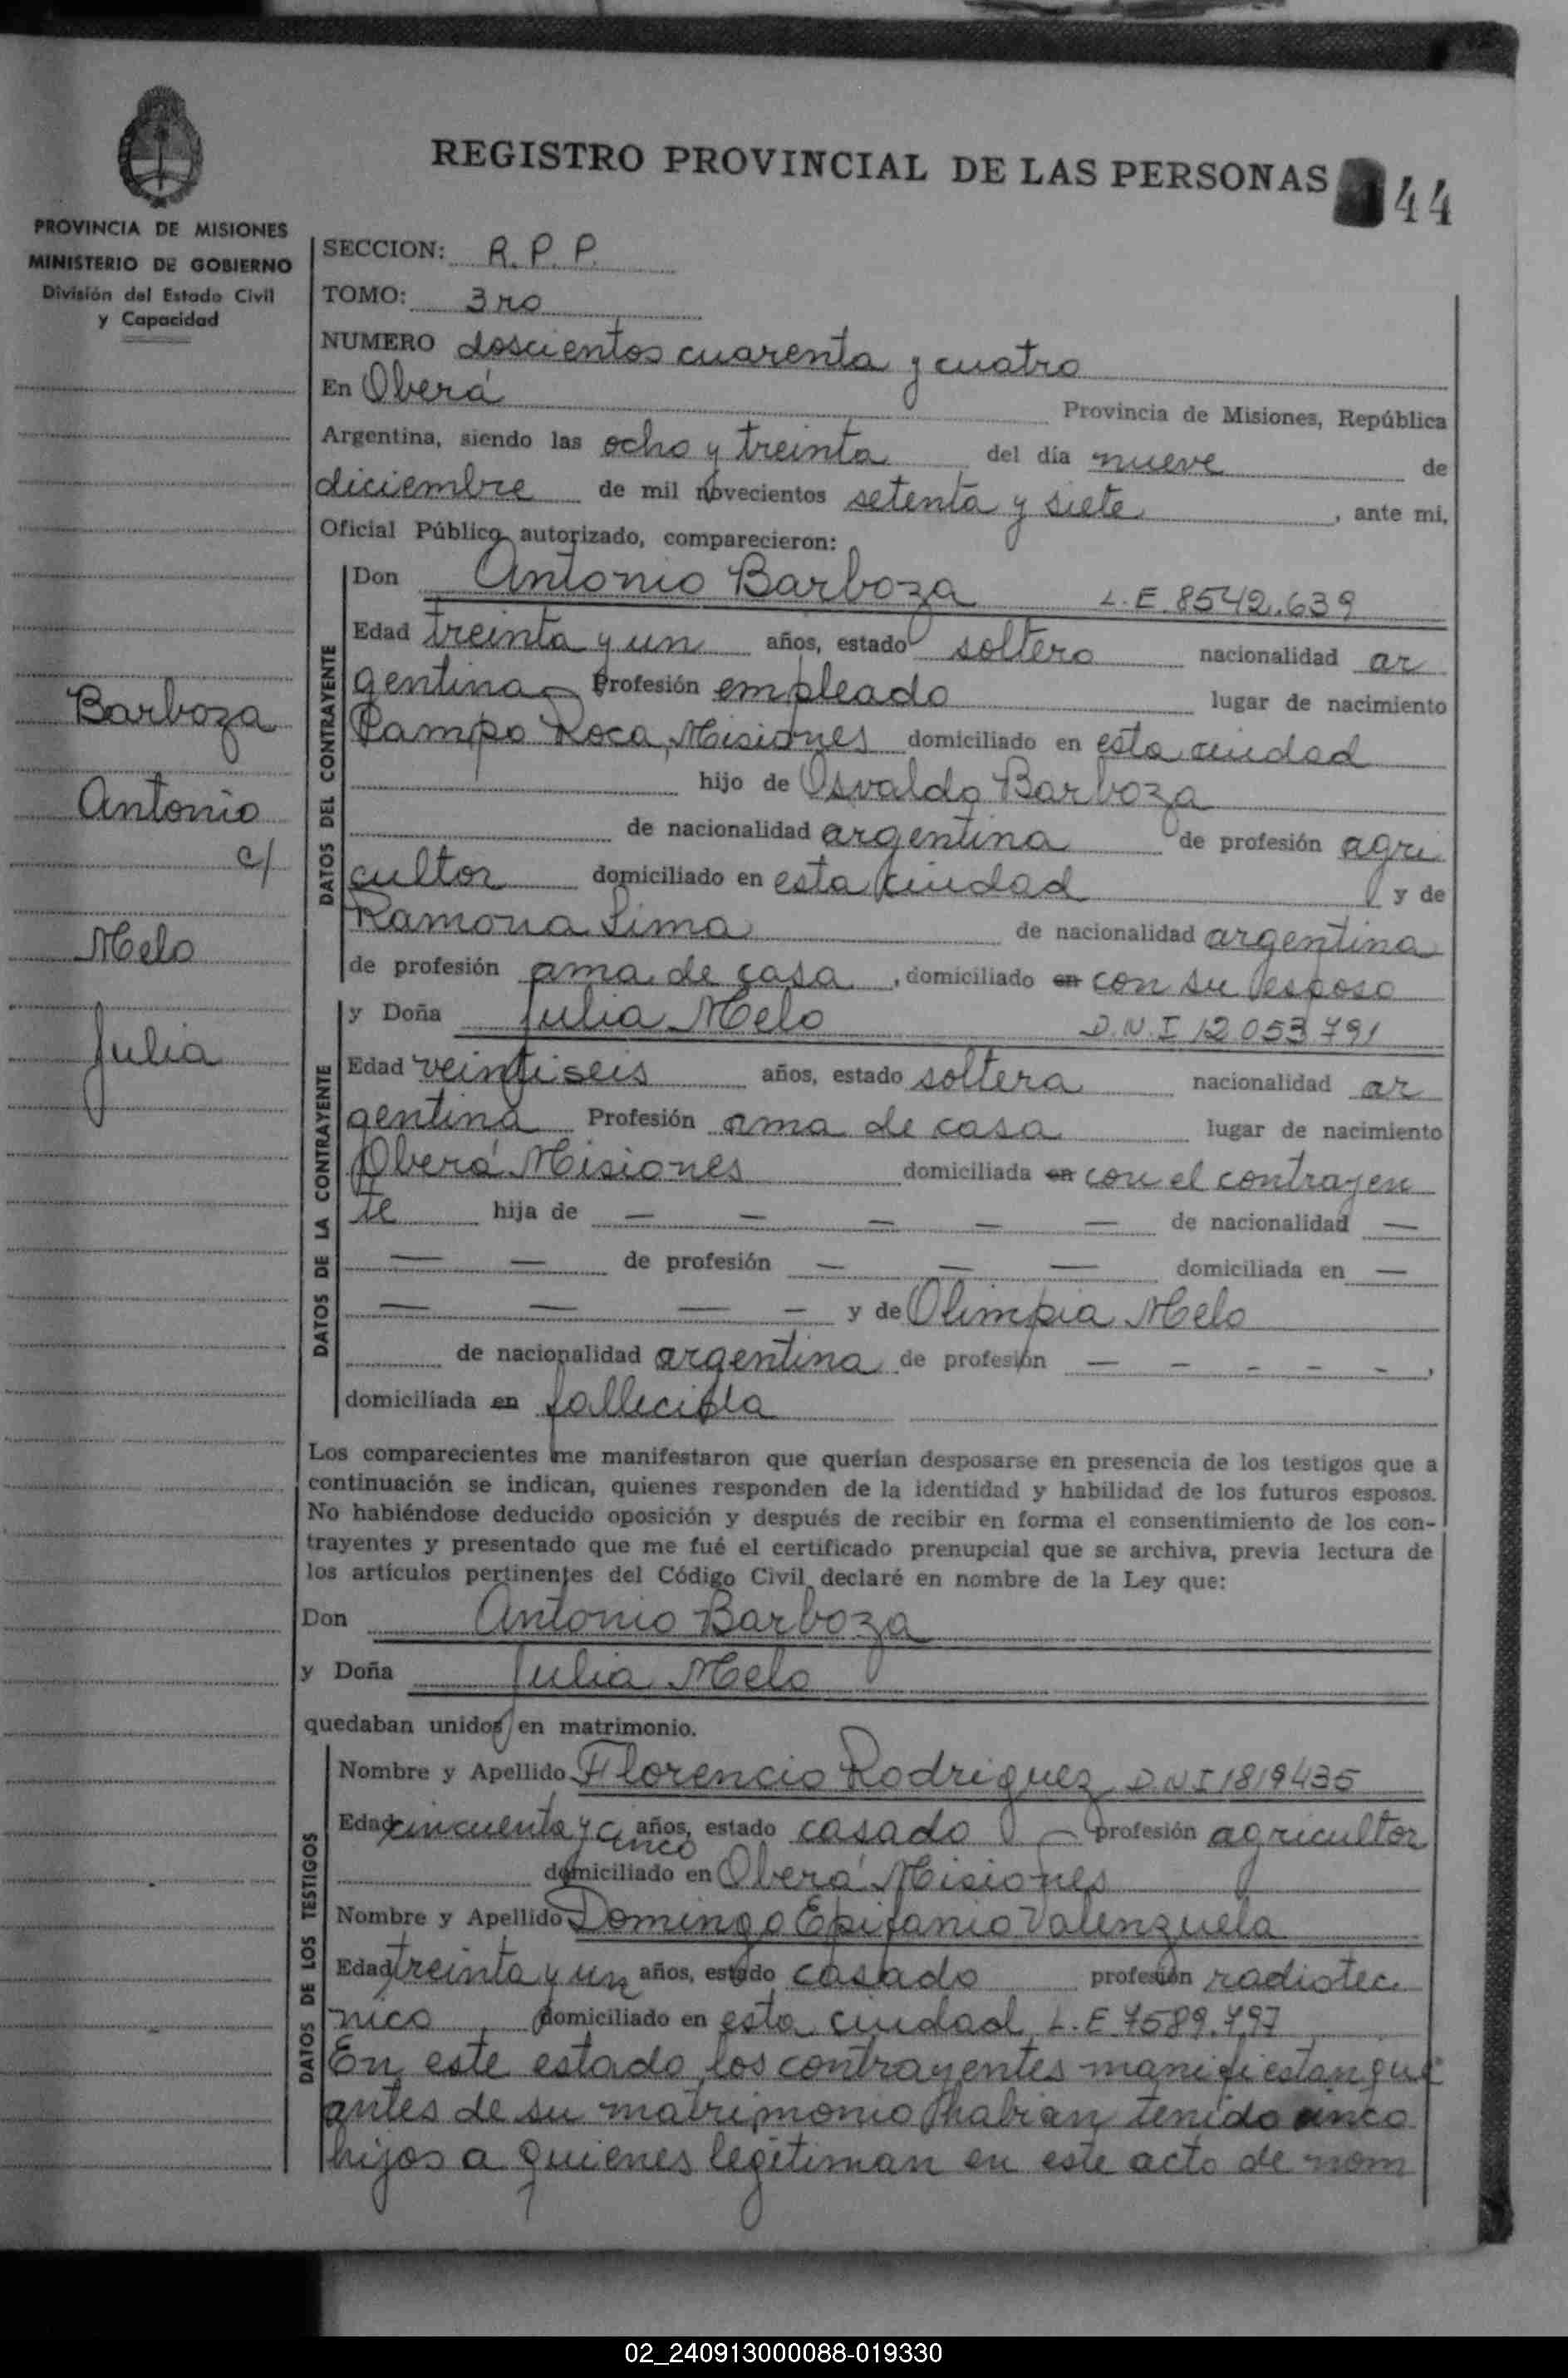 REGISTRO PROVINCIAL DE LAS PERSONAS 44
PROVINCIA DE MISIONES
MINISTERIO DE GOBIERNO
División del Estado Civil
y Capacidad
Barboza
Antonio
c/
Melo
Julia
SECCION: R. P. P.
TOMO: 3ro
NUMERO doscientos cuarenta y cuatro
En Oberá Provincia de Misiones, República
Argentina, siendo las ocho y treinta del día nueve de
diciembre de mil novecientos setenta y siete, ante mi,
Oficial Público autorizado, comparecieron:
DATOS DEL CONTRAYENTE
Don Antonio Barboza L.E. 8542.639
Edad treinta y un años, estado soltero nacionalidad ar
gentina Profesión empleado lugar de nacimiento
Pampa Roca, Misiones domiciliado en esta ciudad
hijo de Osvaldo Barboza
de nacionalidad argentina de profesión agri
cultor domiciliado en esta ciudad y de
Ramona Lima de nacionalidad argentina
de profesión ama de casa, domiciliado en con su esposo
DATOS DE LA CONTRAYENTE
y Doña Julia Melo D.N.I 12.053.791
Edad veintiseis años, estado soltera nacionalidad ar
gentina Profesión ama de casa lugar de nacimiento
Oberá Misiones domiciliada en con el contrayen
te hija de — — — — — de nacionalidad —
— — de profesión — — — domiciliada en —
— — — - y de Olimpia Melo
de nacionalidad argentina de profesión — - - - -,
domiciliada en fallecida
Los comparecientes me manifestaron que querían desposarse en presencia de los testigos que a
continuación se indican, quienes responden de la identidad y habilidad de los futuros esposos.
No habiéndose deducido oposición y después de recibir en forma el consentimiento de los con-
trayentes y presentado que me fué el certificado prenupcial que se archiva, previa lectura de
los artículos pertinentes del Código Civil declaré en nombre de la Ley que:
Don Antonio Barboza
y Doña Julia Melo
quedaban unidos en matrimonio.
DATOS DE LOS TESTIGOS
Nombre y Apellido Florencio Rodriguez D.N.I 1819435
Edad cincuenta y cinco años, estado casado profesión agricultor
domiciliado en Oberá Misiones
Nombre y Apellido Domingo Epifanio Valenzuela
Edad treinta y un años, estado casado profesión radiotec
nico domiciliado en esta ciudad L.E 7589.797
En este estado los contrayentes manifiestan que
antes de su matrimonio habian tenido cinco
hijos a quienes legitiman en este acto de nom
02_240913000088-019330